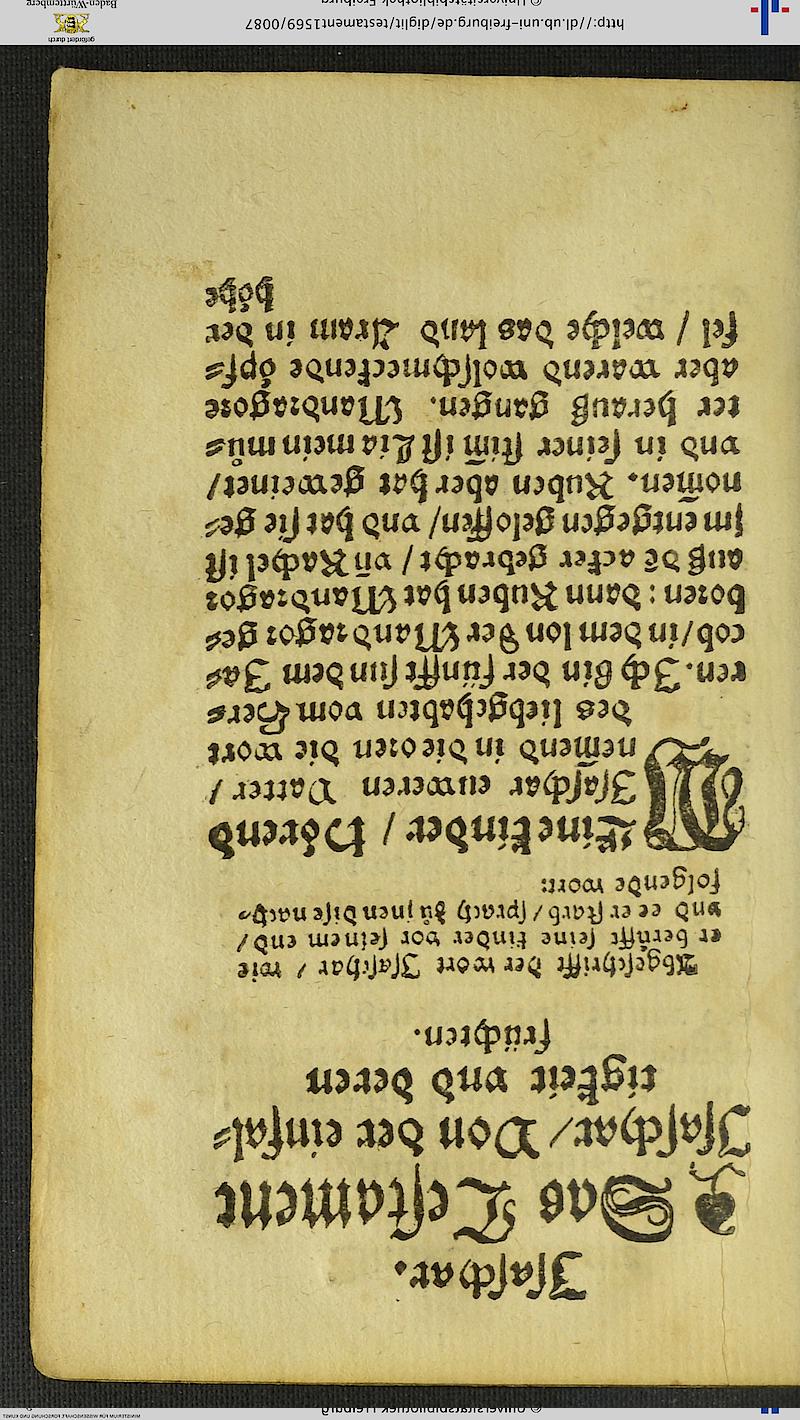 Isaschar.
Das Testament
Isaschar/ Von der einfal=
tigkeit vnd deren
früchten.
Abgeschrifft der wort Isaschar / wie
er berüfft seine kinder vor seinem end/
vnd ee er starb/sprach zů jnen dise nach=
folgende wort:
MEine kinder / Hörend
Isaschar euweren Vatter /
nem̄end in die oren die wort
des liebgehabten vom Herr=
ren. Ich bin der fünfft sun dem Ja=
cob/in dem lon der Mandragor ge=
boren: Dann Ruben hat Mandragor
auß dē acker gebracht/ vn̄ Rachel ist
jm entgegen geloffen/ vnd hat sie ge=
nom̄en. Ruben aber hat geweinet/
vnd in seiner stim̄ ist Lia mein můt=
ter herauß gangen. Mandragore
aber warend wolschmeckende öpf=
fel / welche das land Aram in der
höhe
http://dl.ub.uni-freiburg.de/diglit/testament1569/0087
© Universitätsbibliothek Freiburg
gefördert durch
Baden-Württemberg